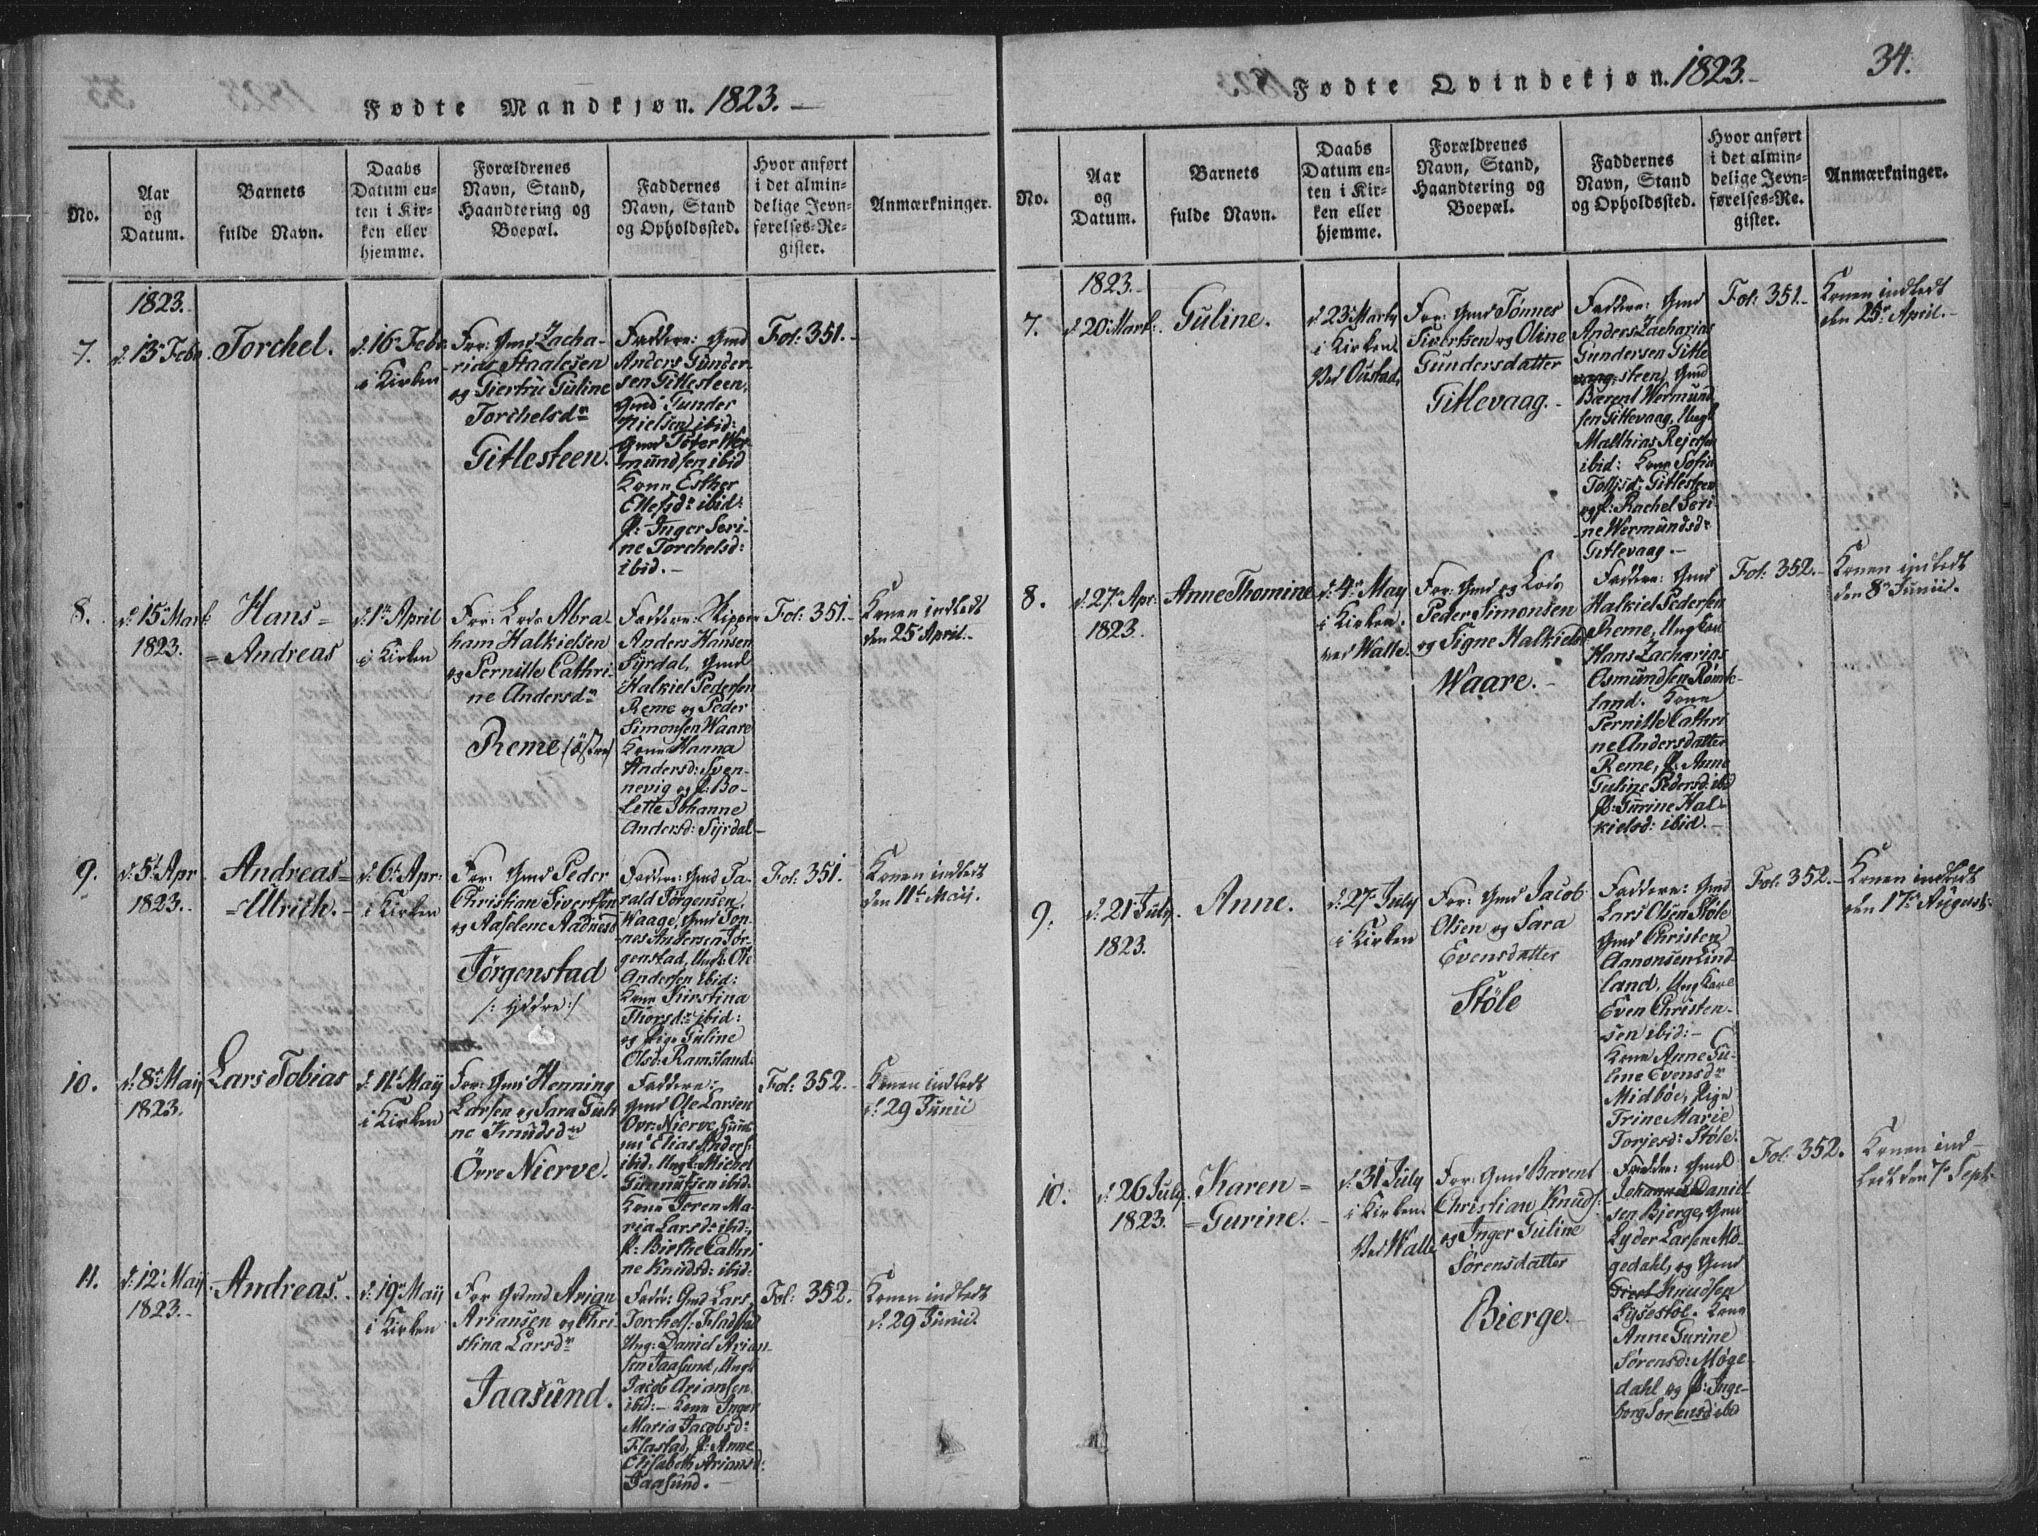 Fødte Mandkjøn. 1823. —
No.
Aar
og
Datum.
Barnets
fulde Navn.
Daabs
Datum en-
ten i Kir-
ken eller
hjemme.
Forældrenes
Navn, Stand,
Haandtering og
Boepæl.
Faddernes
Navn, Stand
og Opholdssted.
Hvor anført
i det almin-
delige Jevn-
førelses-Re-
gister.
Anmærkninger.
7.
1823.
d: 13de Febr.
Torchel.
d: 16 Febr
i Kirken
For: Gmd Zacha-
rias Staalesen
og Giertru Guline
Torchelsdr
Gitlesteen.
Faddere: Gmd
Anders Gunder-
sen Gitlesteen,
Gmd Gunder
Nielsen ibid:
Gmd Tøtor Wer-
mundsen ibid
Kone Esther
Ellefsdr ibid:
P: Inger Seri-
ne Torchelsd:
ibid. —
Fol: 351. —
8.
d: 15 Mark
1823.
Hans =
= Andreas
d: 1ste April
i Kirken
For: Lods Abra-
ham Halkielsen
og Pernille Cathri-
ne Andersdr
Reme (østre)
Faddere: Skipper
Anders Hansen
Syrdal, Gmd
Halkiel Pedersen
Reme og Peder
Simonsen Waare
Kone Hanna
Andersd: Sven-
nevig og P: Bo-
lette Johanne
Andersd: Syrdal —
Fol: 351. —
Konen indledt
den 25 April. —
9.
d: 5te Apr
1823. —
Andreas =
= Ulrich. —
d: 6te Apr:
i Kirken
For: Gmd Peder
Christian Sivertsen
og Aaselene Aadnesd
Jørgenstad
/: ydre :/
Faddere: Gmd Ta-
rald Jørgensen,
Waage, Gmd Ton-
nes Andersen Jør-
genstad, Ungk: Ole
Andersen ibid:
Kone Kirstina
Thorsdr ibid:
og Pige Guline
Olsd: Ramsland.
Fol: 351.
Konen indledt
den 11te Maij.
10.
d: 8de Maij
1823.
Lars Tobias
d: 11te Maij
i Kirken
For: Gmd Henning
Larsen og Sara Guli-
ne Knudsdr
Övre Nierve.
Faddere:
Gmd Ole Larsen
Ovr: Nierve, Huus-
md Elias Anders:
ibid, Ungk: Michel
Gunnufsen ibid.
Kone Joren Ma-
ria Larsd: ibid:
P: Birthe Cathri
ne Knudsd: ibid:
Fol: 352. —
Konen indledt
d: 29 Junii
11.
d: 12te Maij
1823. —
Andreas. —
d: 19 Maij
i Kirken
For Grdmd Arian
Ariansen og Chri-
stina Larsdr
Jaasund.
Fadd: Gmd Lars
Torchels: Fladstad
Ung: Daniel Arian-
sen Jaasund, Ungk
Jacob Ariansen
ibid: — Kone Inger
Maria Jacobsd:
Flastad, P: Anne
Elisabeth Ariansd:
Jaasund. —
Fol: 352.
Konen indledt
d: 29 Junii.
34.
Fødte Qvindekjøn. 1823. —
No.
Aar
og
Datum.
Barnets
fulde Navn.
Daabs
Datum en-
ten i Kir-
ken eller
hjemme.
Forældrenes
Navn, Stand,
Haandtering og
Boepæl.
Faddernes
Navn, Stand
og Opholdssted.
Hvor anført
i det almin-
delige Jevn-
førelses-Re-
gister.
Anmærkninger.
7.
1823. —
d: 20 Mark:
Guline.
d: 23 Marty
i Kirken.
Ved Oustad,
For: Gmd Tønnes
Sivertsen og Oline
Gundersdatter
Gitlevaag. —
Faddere: Gmd
Anders Zacharias
Gundersen Gitle
steen, Gmd
Bærent Wermund
sen Gitlevaag, Ungk
Mathias Rejersen
ibid: Kone Sofia
Tollisd: Gitlesteen
og P: Rachel Seri-
ne Wermundsdr
Gitlevaag —
Fol: 351. —
Konen indledt
den 25 April. —
8.
d: 27 Apr:
1823.
Anne Thomine
d: 4de May
i Kirken.
ved Walle.
For: Gmd og Lods
Peder Simonsen
og Signe Halkielsd
Waare. —
Faddere: Gmd
Halkiel Pedersen
Reme, Ung Karl
Hans Zacharias
Osmundsen Rømte-
land. Kone
Pernille Cathri
ne Andersdatter
Reme, P: Anne
Guline Pedersd: ibd
P: Gurine Hal-
kielsd: ibid. —
Fol: 352. —
Konen indledt
den 8de Junii.
9.
d: 21 July.
1823.
Anne.
d: 27 July
i Kirken
For: Gmd Jacob
Olsen og Sara
Evensdatter
Støle
Faddere: Gmd
Lars Olsen Støle
Gmd Christen
Aanonsen Lind-
land, Ung Karl
Even Christen-
sen ibid: —
Kone Anne Gu-
line Evensdr
Midbøe, Pige
Trine Marie
Torjesd: Støle.
Fol: 352. —
Konen indledt
den 17de August.
10.
d: 26 July.
1823.
Karen =
= Gurine. —
d: 31 July
i Kirken
Ved Walle
For: Gmd Barent
Christian Knuds:
og Inger Guline
Sørensdatter
Bierge. —
Faddere: Gmd
Johannes Daniel-
sen Bjerge, Gmd
Lyder Larsen Mø-
gedahl, og Gmd
Knudsen
Lysestøl. Kone
Anne Gurine
Sørensd: Møge-
dahl og P: Inge-
borg Sorensd ibid
Fol: 352.
Konen ind-
ledt den 7de Sept: